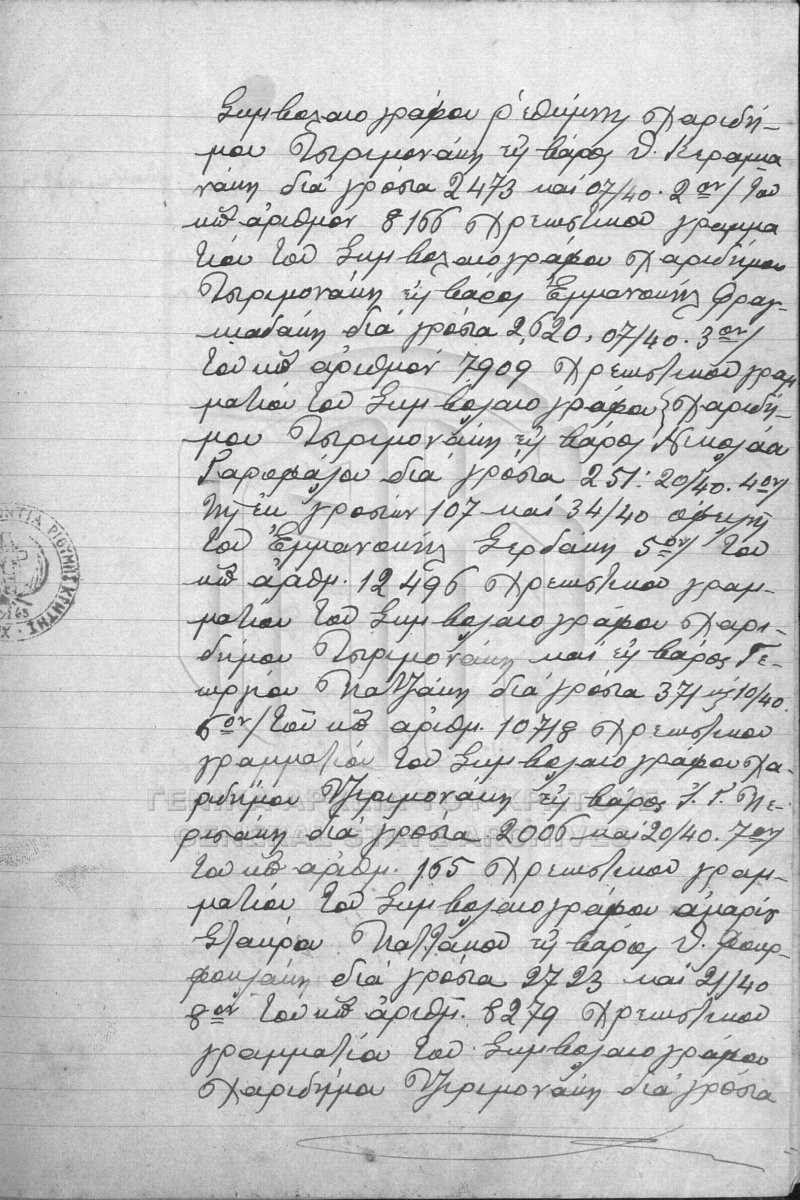 Συμβολαιογράφου Ρεθύμνης Χαριδή-
μου Τσιριμονάκη εις βάρος Θ. Κεραμια
νάκη διά γρόσια 2473 και 07/40. 2ον/ Του
υπ' αριθμόν 8166 χρεωστικού γραμμα
τίου του Συμβολαιογράφου Χαριδήμου
Τσιριμονάκη εις βάρος Εμμανουήλ Φραγ-
κιαδάκη διά γρόσια 2,620, 07/40. 3ον/
του υπ' αριθμόν 7909 χρεωστικού γραμ
ματίου του Συμβολαιογράφου Χαριδή-
μου Τσιριμονάκη εις βάρος Νικολάου
Γαροφάλου διά γρόσια 251: 20/40. 4ον/
Της εκ γροσίων 107 και 34/40 οφειλής
του Εμμανουήλ Σερδάκη 5ον/ του
υπ' αριθμ. 12496 χρεωστικού γραμ-
ματίου του Συμβολαιογράφου Χαρι-
δήμου Τσιριμονάκη και εις βάρος Γε-
ωργίου διά γρόσια 371 και 10/40.
6ον/ του υπ' αριθμ. 10718 χρεωστικού
γραμματίου του Συμβολαιογράφου Χα-
ριδήμου Τζιριμονάκη εις βάρος Ι. Γ. Πε-
ρισάκη διά γρόσια 2006 και 20/40. 7ον/
του υπ' αριθμ. 165 χρεωστικού γραμ-
ματίου του Συμβολαιογράφου Αμαρίου
Σταύρου εις βάρος Θ. Φουρ-
φουλάκη διά γρόσια 2723 και 21/40
8ον του υπ' αριθμ. 8279 χρεωστικού
γραμματίου του Συμβολαιογράφου
Χαριδήμου Τζιριμονάκη διά γρόσια
ΓΕΝΙΚΑ ΑΡΧΕΙΑ ΤΟΥ ΚΡΑΤΟΥΣ
GENERAL STATE ARCHIVES
ΡΕΘΥΜΝΗΣ ΚΡΗΤΗΣ